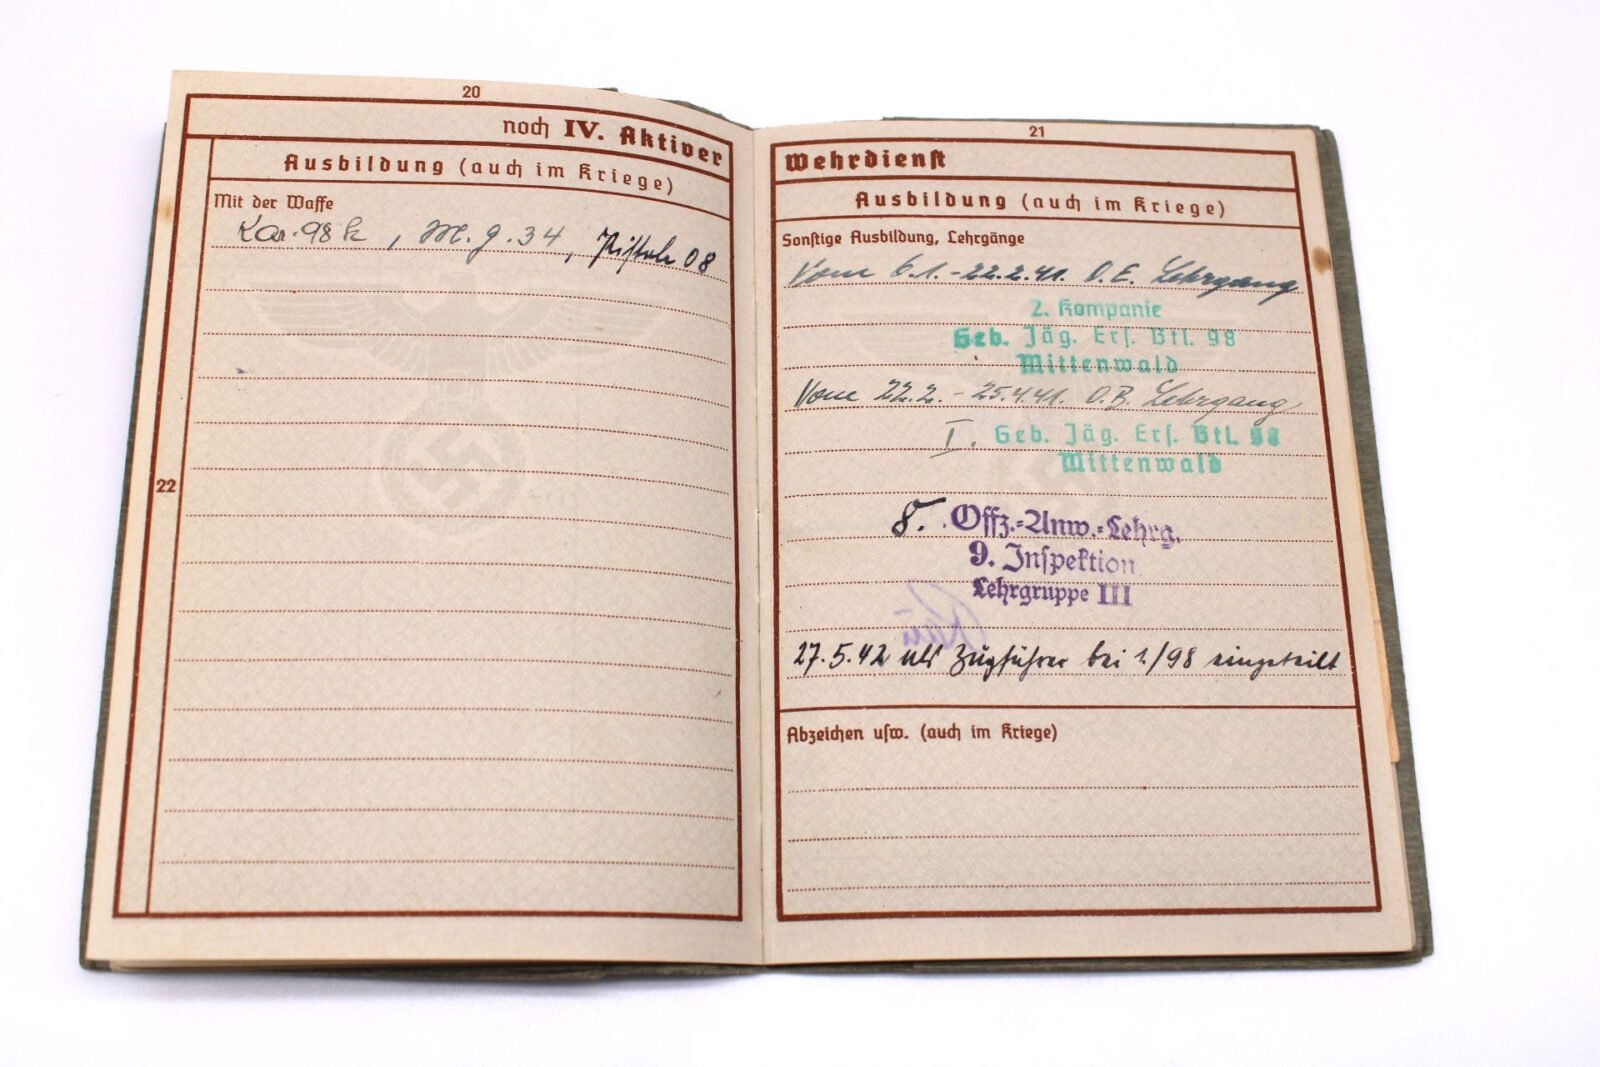 20
noch IV. Aktiver
Ausbildung (auch im Kriege)
Mit der Waffe
Kar. 98 k, M.g. 34, Pistole 08
22
21
Wehrdienst
Ausbildung (auch im Kriege)
Sonstige Ausbildung, Lehrgänge
Vom 6.1.-22.2.41. O.E. Lehrgang
2. Kompanie
Geb. Jäg. Ers. Btl. 98
Mittenwald
Vom 22.2.-25.4.41. O.B. Lehrgang
I. Geb. Jäg. Ers. Btl. 98
Mittenwald
8. Offz.-Anw.-Lehrg.
9. Inspektion
Lehrgruppe III
27.5.42 als Zugführer bei 1./98 eingeteilt
Abzeichen usw. (auch im Kriege)